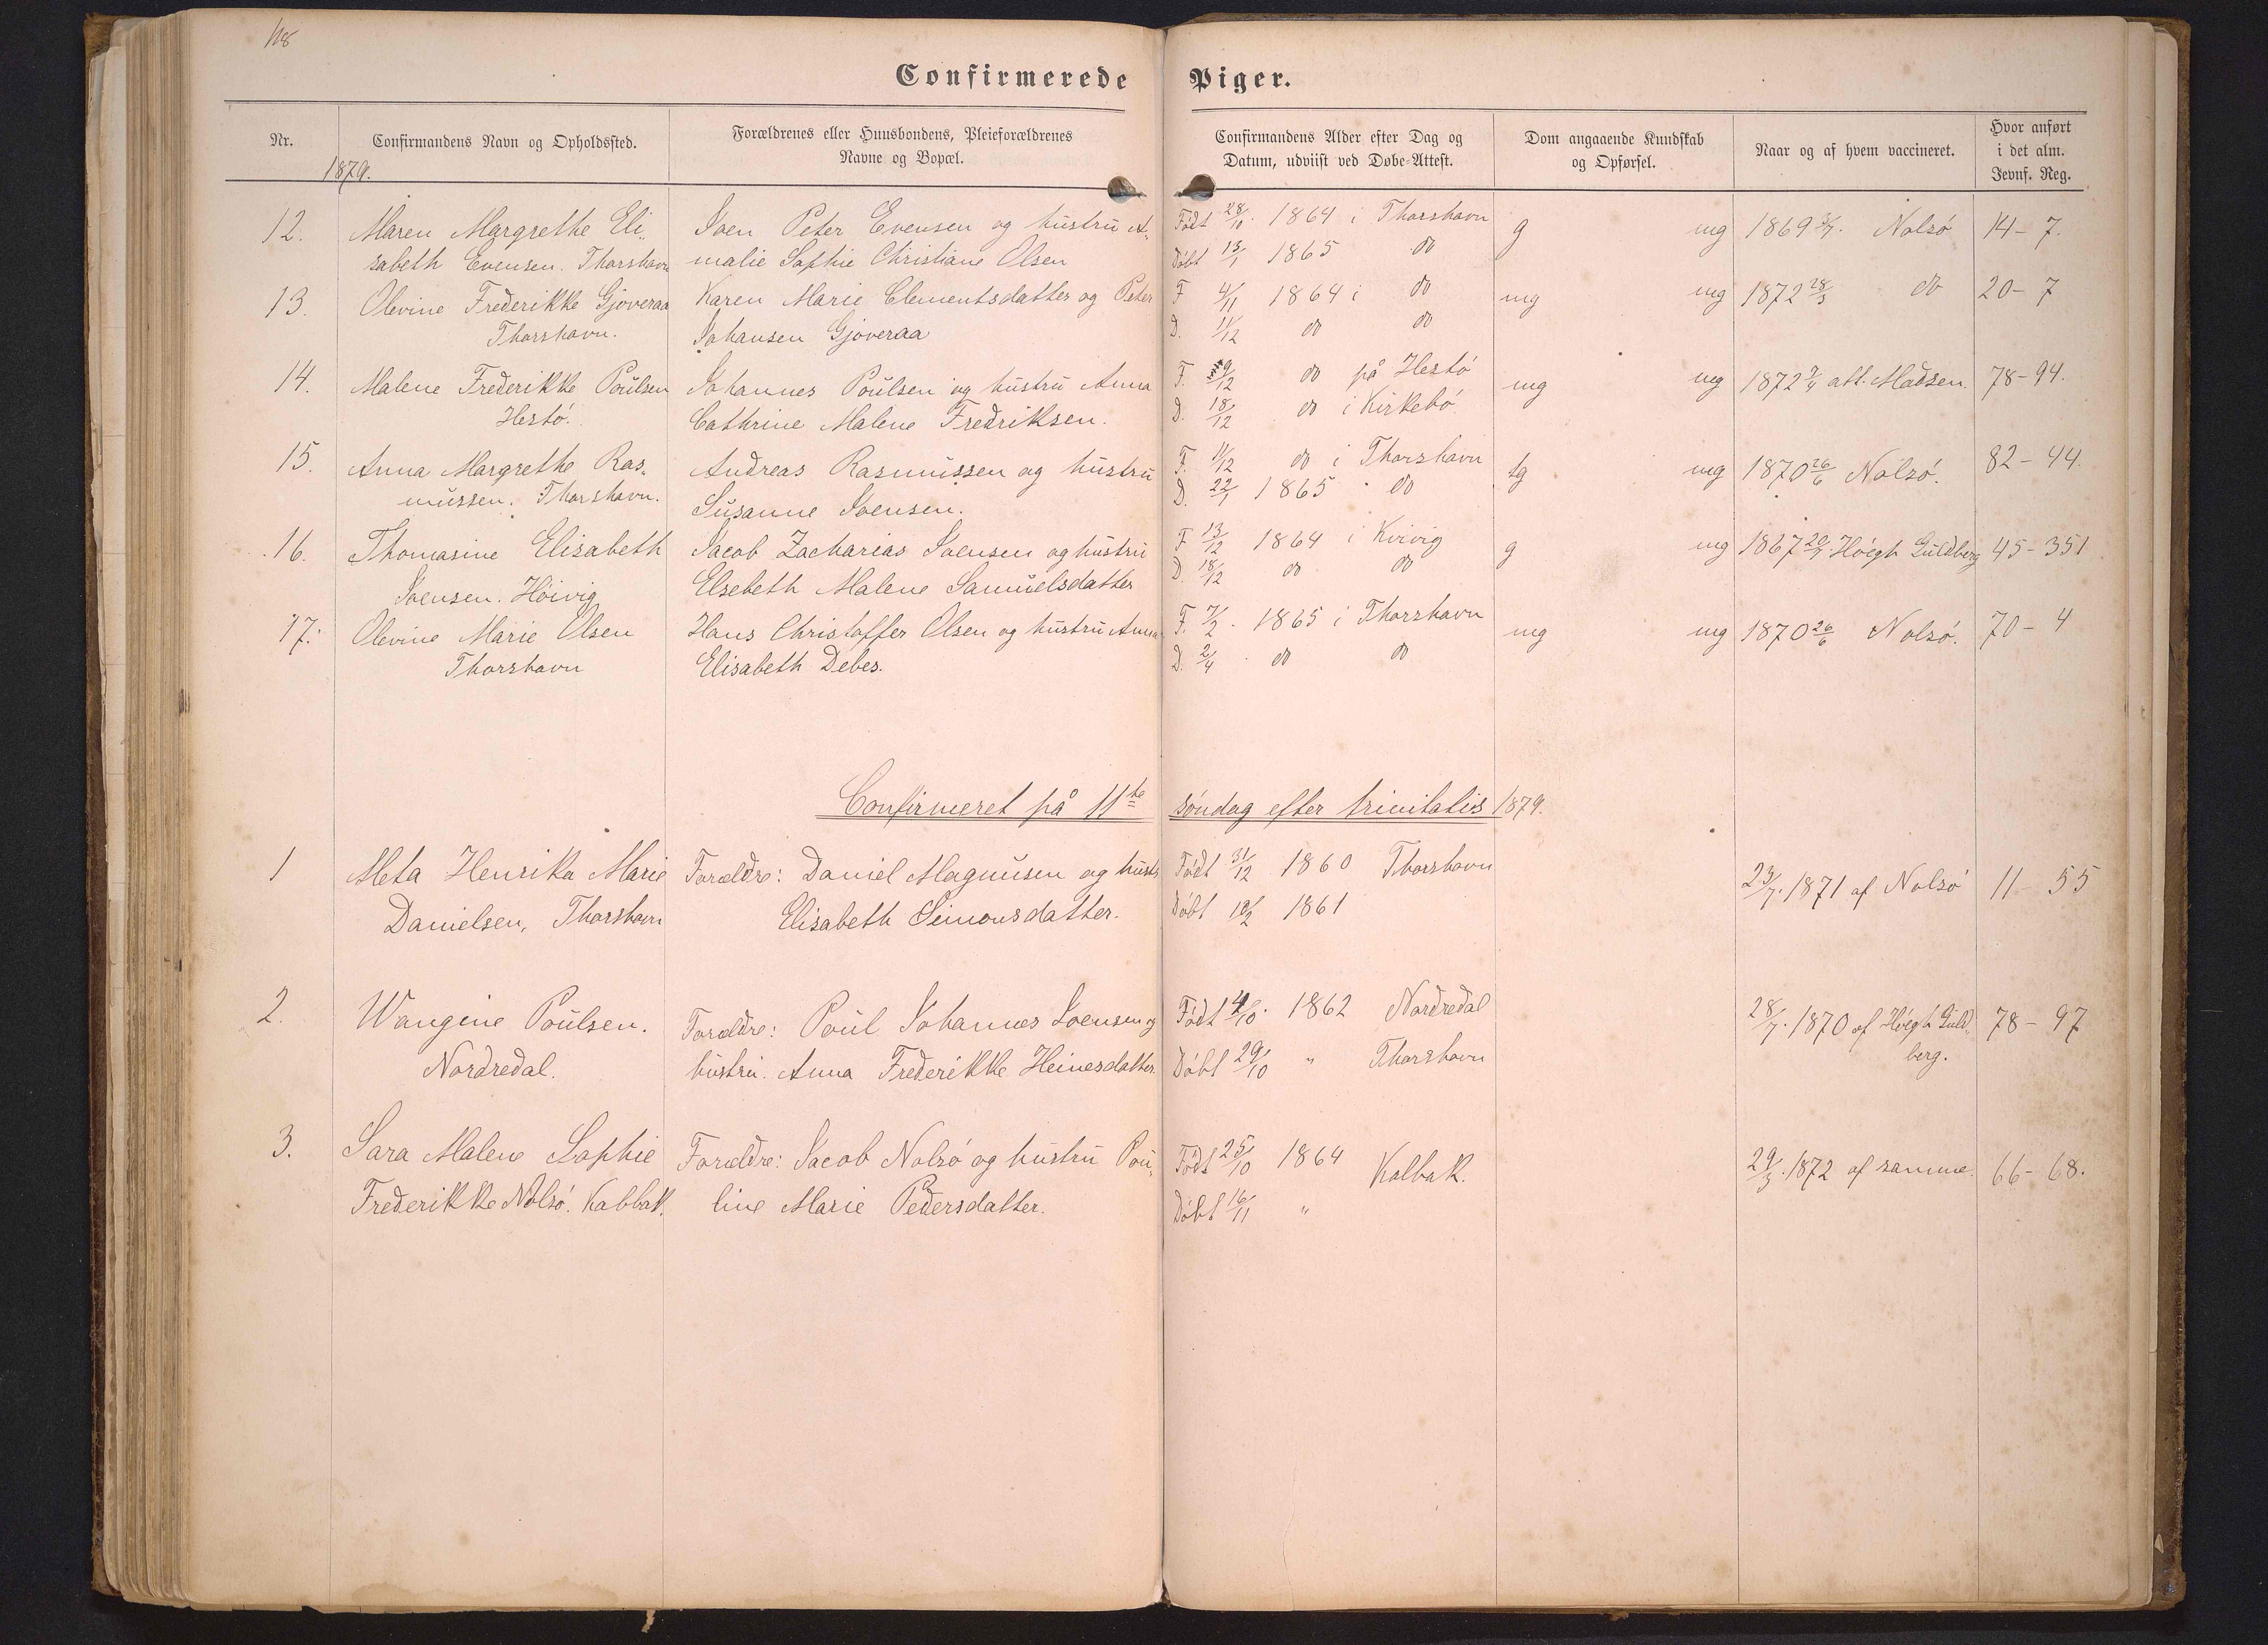 118
Confirmerede Piger.
Nr.
Confirmandens Navn og Opholdssted.
Forældrenes eller Huusbondens, Pleieforældrenes
Navne og Bopæl.
Confirmandens Alder efter Dag og
Datum, udviist ved Døbe-Attest.
Dom angaaende Kundskab
og Opførsel.
Naar og af hvem vaccineret.
Hvor anført
i det alm.
Jevnf. Reg.
1879.
12. Maren Margrethe Eli- Joen Peter Evensen og hustru A- Født 28/10. 1864 i Thorshavn g mg 1869 Nolsö 14-7.
sabeth Evensen. Thorshavn malie Sophie Christiane Olsen Döbt 13/1 1865 do
13. Olevine Frederikke Gjoveraa Karen Marie Clementsdatter og Peter F 4/11 1864 i do mg mg 1872 28/3 do 20-7
Thorshavn. Johansen Gjoveraa D. 11/12 do do
14. Malene Frederikke Poulsen Johannes Poulsen og hustru Anna F. 9/12 do på Hestö mg mg 1872 att. Madsen. 78-94.
Hestö. Cathrine Malene Fredriksen. D. 18/12 do i Kirkebö.
15. Anna Margrethe Ras- Andreas Rasmussen og hustru F. 11/12 do i Thorshavn tg mg 1870 26/6 Nolsö. 82-44.
mussen. Thorshavn. Susanne Joensen. D. 22/1 1865 do
16. Thomasine Elisabeth Jacob Zacharias Joensen og hustru F 13/12 1864 i Kvivig g mg 1867 20/7 Höegh Guldberg 45-351
Joensen. Höivig Elsebeth Malene Samuelsdatter D. 18/12 do do
17. Olevine Marie Olsen Hans Christoffer Olsen og hustru Anna F. 7/2. 1865 i Thorshavn mg mg 1870 26/6 Nolsö. 70-4
Thorshavn Elisabeth Debes. D. 2/4. do do
Confirmeret på 11te söndag efter trinitatis 1879.
1 Meta Henrika Marie Forældre: Daniel Magnusen og hustr. Født 31/12 1860 Thorshavn 23/7. 1871 af Nolsö 11-55
Danielsen, Thorshavn Elisabeth Simonsdatter. Döbt 10/2 1861
2. Wangine Poulsen. Forældre: Poul Johannes Joensen og Født 4/10. 1862 Nordredal 28/7. 1870 af Höegh Guld- 78-97
Nordredal. hustru. Anna Frederikke Heinesdatter. Döbt 29/10 " Thorshavn berg.
3. Sara Malene Sophie Forældre: Jacob Nolsö og hustru Pou- Født 25/10 1864 Kalbak. 29/3. 1872 af samme. 66-68.
Frederikke Nolsö. Kalbak. line Marie Pedersdatter. Döbt 16/11 "